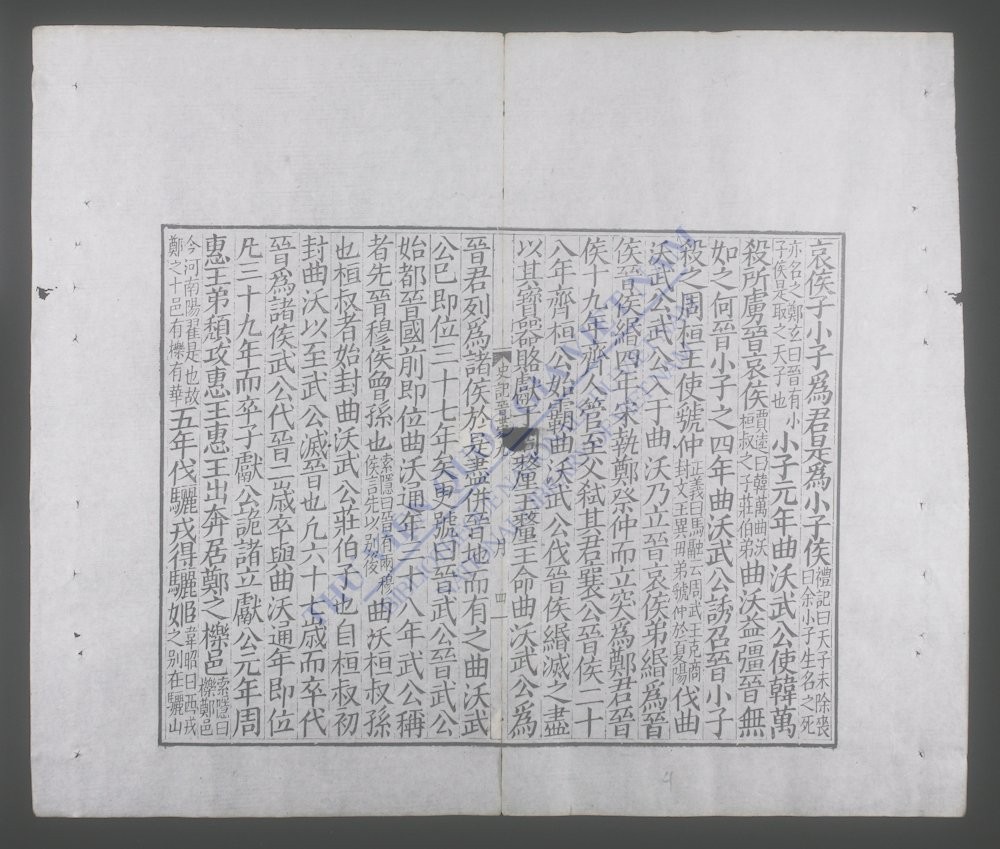 哀侯子小子爲君是爲小子侯禮記曰天子未除喪曰余小子生名之死
亦名之鄭玄曰晉有小子侯是取之天子也小子元年曲沃武公使韓萬
殺所虜晉哀侯賈逵曰韓萬曲沃桓叔之子莊伯弟曲沃益彊晉無
如之何晉小子之四年曲沃武公誘召晉小子
殺之周桓王使虢仲正義曰馬融云周武王克商封文王異母弟虢仲於夏陽伐曲
沃武公武公入于曲沃乃立晉哀侯弟緡爲晉
侯晉侯緡四年宋執鄭祭仲而立突爲鄭君晉
侯十九年齊人管至父弑其君襄公晉侯二十
八年齊桓公始霸曲沃武公伐晉侯緡滅之盡
以其寶器賂獻于周釐王釐王命曲沃武公爲
史記晉世家九
四
晉君列爲諸侯於是盡併晉地而有之曲沃武
公已即位三十七年矣更號曰晉武公晉武公
始都晉國前即位曲沃通年三十八年武公稱
者先晉穆侯曾孫也索隱曰晉有兩穆侯言先以別後曲沃桓叔孫
也桓叔者始封曲沃武公莊伯子也自桓叔初
封曲沃以至武公滅晉也凡六十七歲而卒代
晉爲諸侯武公代晉二歲卒與曲沃通年即位
凡三十九年而卒子獻公詭諸立獻公元年周
惠王弟頹攻惠王惠王出奔居鄭之櫟邑索隱曰櫟鄭邑
今河南陽翟是也故鄭之十邑有櫟有華五年伐驪戎得驪姬韋昭曰西戎之别在驪山
THƯ VIỆN QUỐC GIA VIỆT NAM